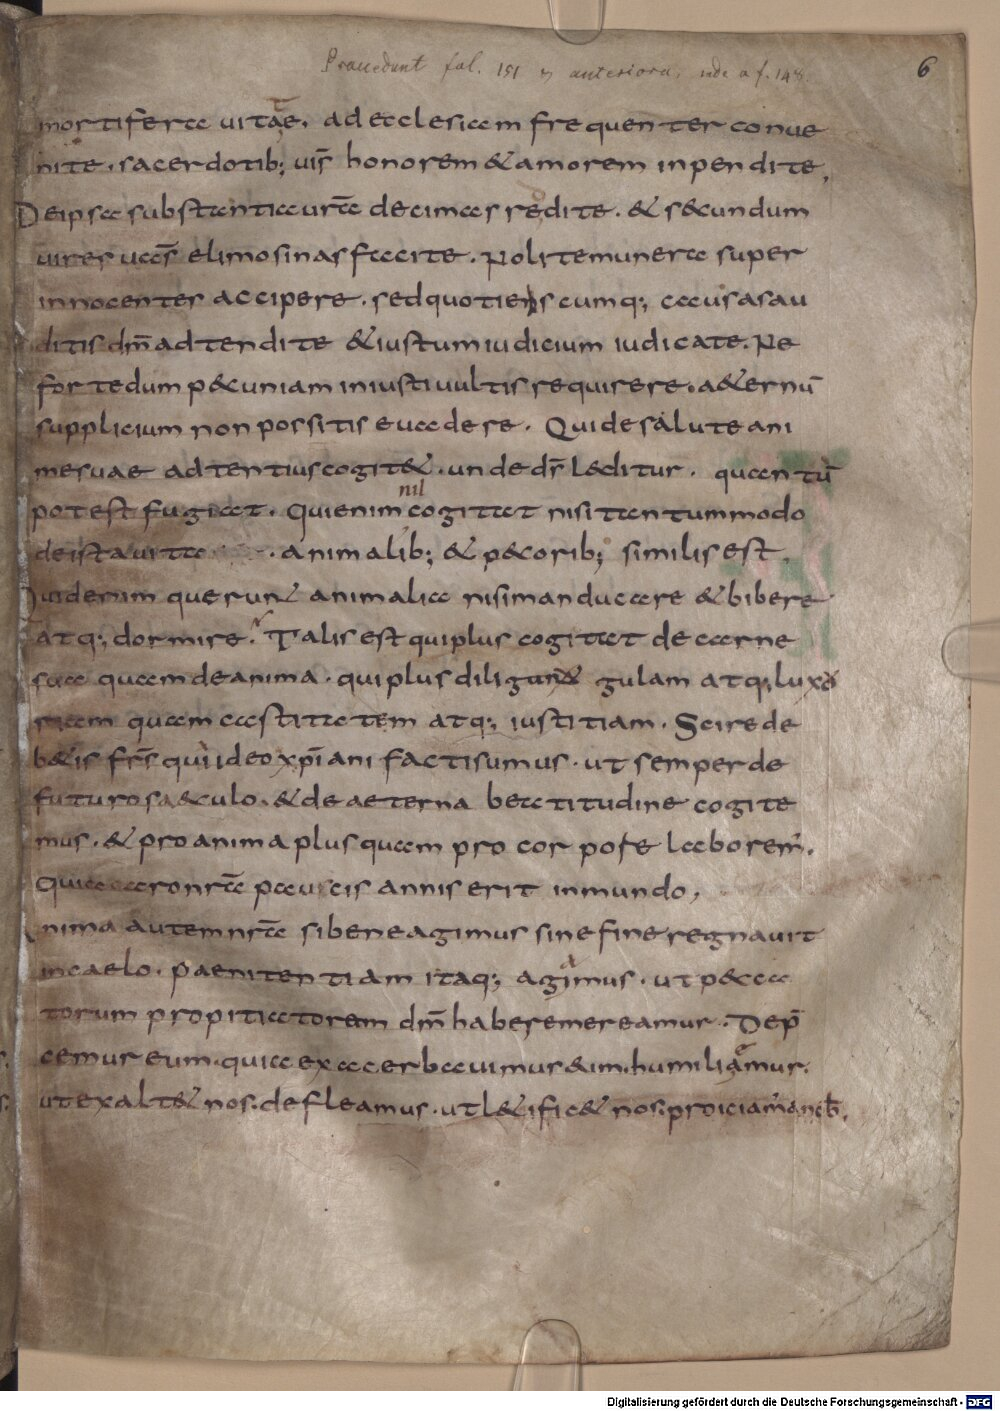 Praecedunt fol. 151 & anteriora, inde a f. 148.
6
mortifera uitate. ad ecclesiam frequenter conue
nite. sacerdotib; uīs honorem & amorem inpendite,
De ipsa substantia urā decimas reddite. & secundum
uires uās elimosinas facite. Nolite munera super
innocentes accipere. sed quotienscumq; causas au
ditis dm̄ adtendite & iustum iudicium iudicate. Ne
forte dum pecuniam iniusti uultis requirere. aeternū
supplicium non possitis euadere. Qui de salute ani
mesuae adtentius cogitet. unde dr̄ leditur. quantū
potest fugiat. Qui enim nil cogitat nisi tantummodo
de ista uita. animalib; & pecorib; similis est.
Quid enim querunt animalia nisi manducare & bibere
atq; dormire. Talis est qui plus cogitat de carne
sua quam de anima. qui plus diligunt gulam atq; luxo
riam quam castitatem atq; iustitiam. Scire de
betis frs̄ quia ideo xp̄iani facti sumus. ut semper de
futuro saeculo. & de aeterna beatitudine cogite
mus. & pro anima plus quam pro corpore laborem̄.
Quia caro nrā paucis annis erit in mundo,
Anima autem nrā si bene agimus sine fine regnauit
in caelo. Paenitentiam itaq; agamus. ut pecca
torum propitiatorem dm̄ habere mereamur. Dep̄
cemur eum. quia exacerbauimus eum. humiliemur.
ut exaltet nos. defleamus. ut letificet nos. proiciam̄ an cb̄.
Digitalisierung gefördert durch die Deutsche Forschungsgemeinschaft - DFG